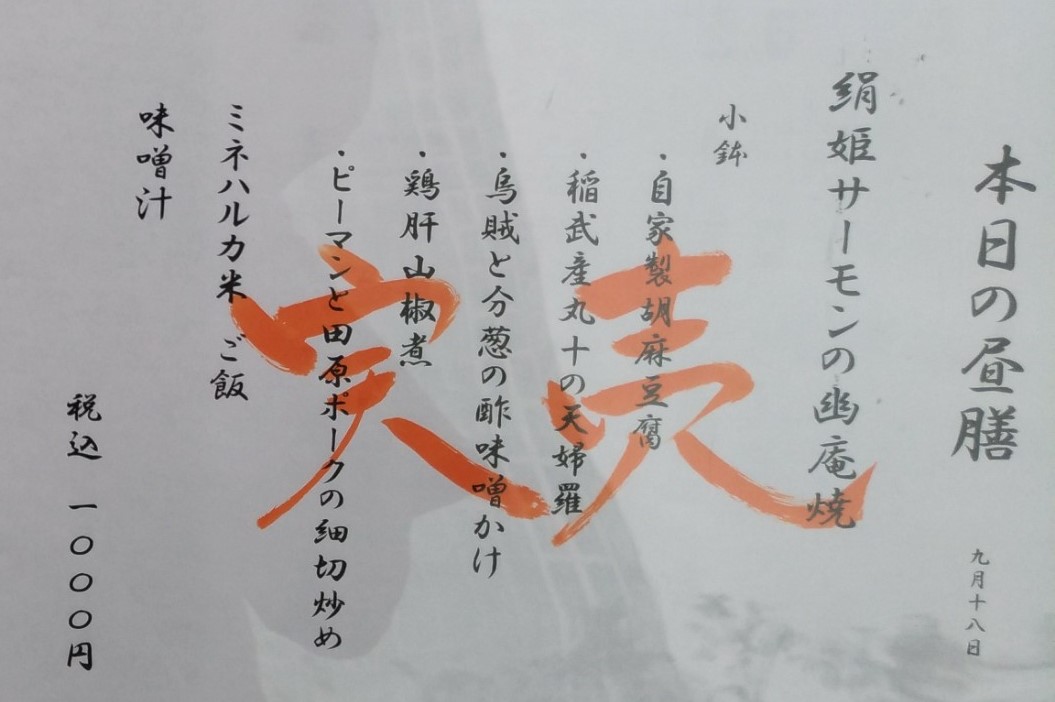 本日の昼膳
九月十八日
絹姫サーモンの幽庵焼
小鉢
・自家製胡麻豆腐
・稲武産丸十の天婦羅
・烏賊と分葱の酢味噌かけ
・鶏肝山椒煮
・ピーマンと田原ポークの細切炒め
ミネハルカ米 ご飯
味噌汁
税込 一〇〇〇円